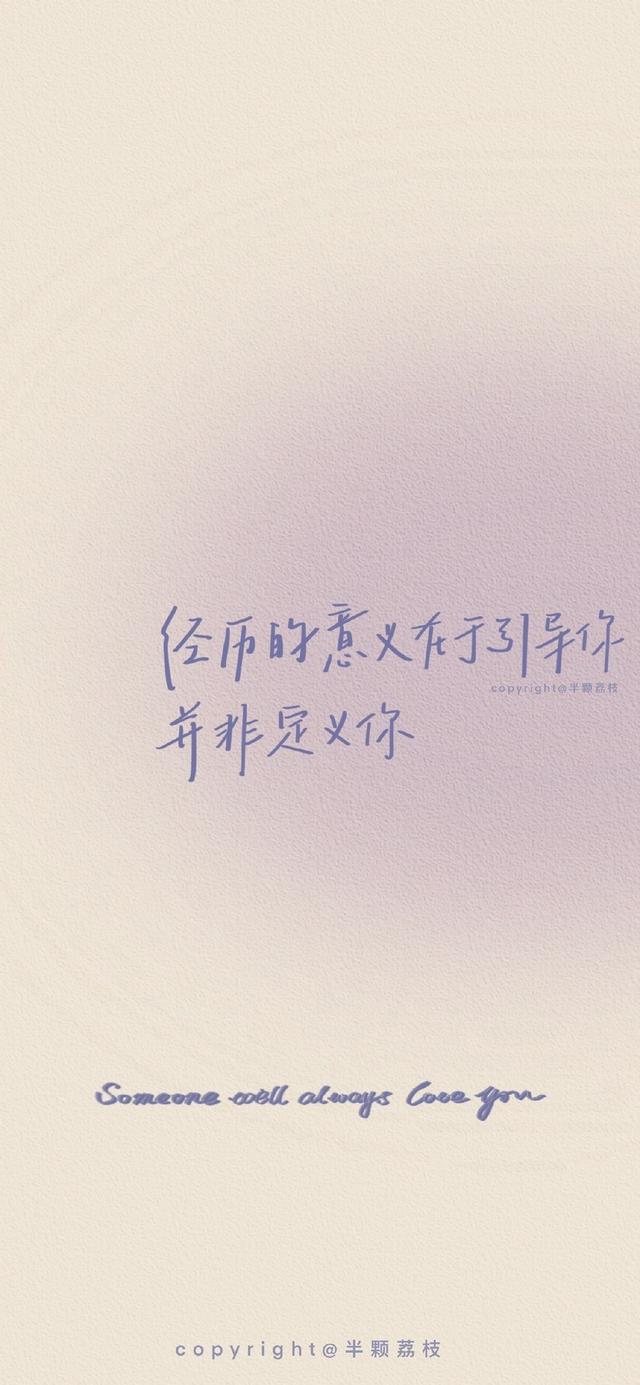 经历的意义在于引导你
copyright@半颗荔枝
并非定义你
Someone will always love you
copyright@半颗荔枝